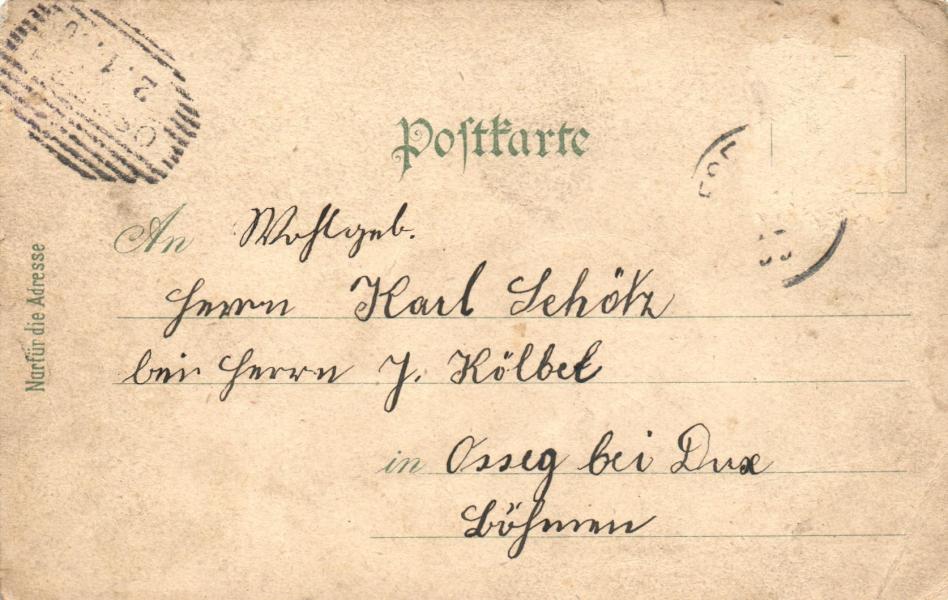 Postkarte
An Wohlgeb.
Herrn Karl Schötz
bei Herrn J. Kölbel
in Osseg bei Dux
Böhmen
Nur für die Adresse